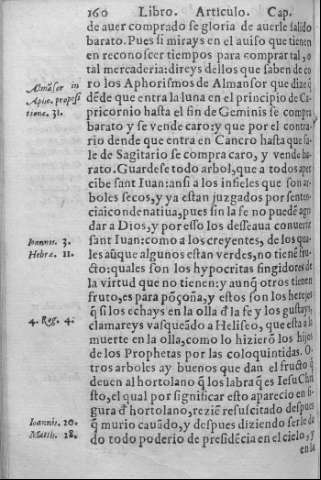 160 Libro. Articulo. Cap.
de auer comprado se gloria de auerle salido
barato. Pues si mirays en el auiso que tienen
en reconoscer tiempos para comprar tal, o
tal mercaderia: direys dellos que saben de co
ro los Aphorismos de Almansor que dize q̃
dẽde que entra la luna en el principio de Ca
pricornio hasta el fin de Geminis se compra
barato y se vende caro: y que por el contra
rio dende que entra en Cancro hasta que sa
le de Sagitario se compra caro, y vende ba
rato. Guardese todo arbol, que a todos aper
cibe sant Iuan: ansi a los infieles que son ar-
boles secos, y ya estan juzgados por senten
cia condenatiua, pues sin la fe no puedẽ agra
dar a Dios, y por esso los desseaua conuertir
sant Iuan: como a los creyentes, de los qua-
les aũque algunos estan verdes, no tienẽ fru-
cto: quales son los hypocritas fingidores de
la virtud que no tienen: y aunq̃ otros tienen
fruto, es para põçoña, y estos son los herejes
q̃ si los echays en la olla đ la fe y los gustays,
clamareys vasqueãdo a Heliseo, que esta a la
muerte en la olla, como lo hizierõ los hijos
de los Prophetas por las coloquintidas. O-
tros arboles ay buenos que dan el fructo q̃
deuen al hortolano q̃ los labra q̃ es Iesu Chri
sto, el qual por significar esto aparecio en fi-
gura đ hortolano, reziẽ resuscitado despues
q̃ murio cauãdo, y despues diziendo serle da
do todo poderio de presidẽcia en el cielo, y
en la
Almãsor in
Apho. proposi
tione. 31.
Ioannis. 3.
Hebræ. 11.
4. Reg. 4.
Ioannis. 20.
Matth. 28.